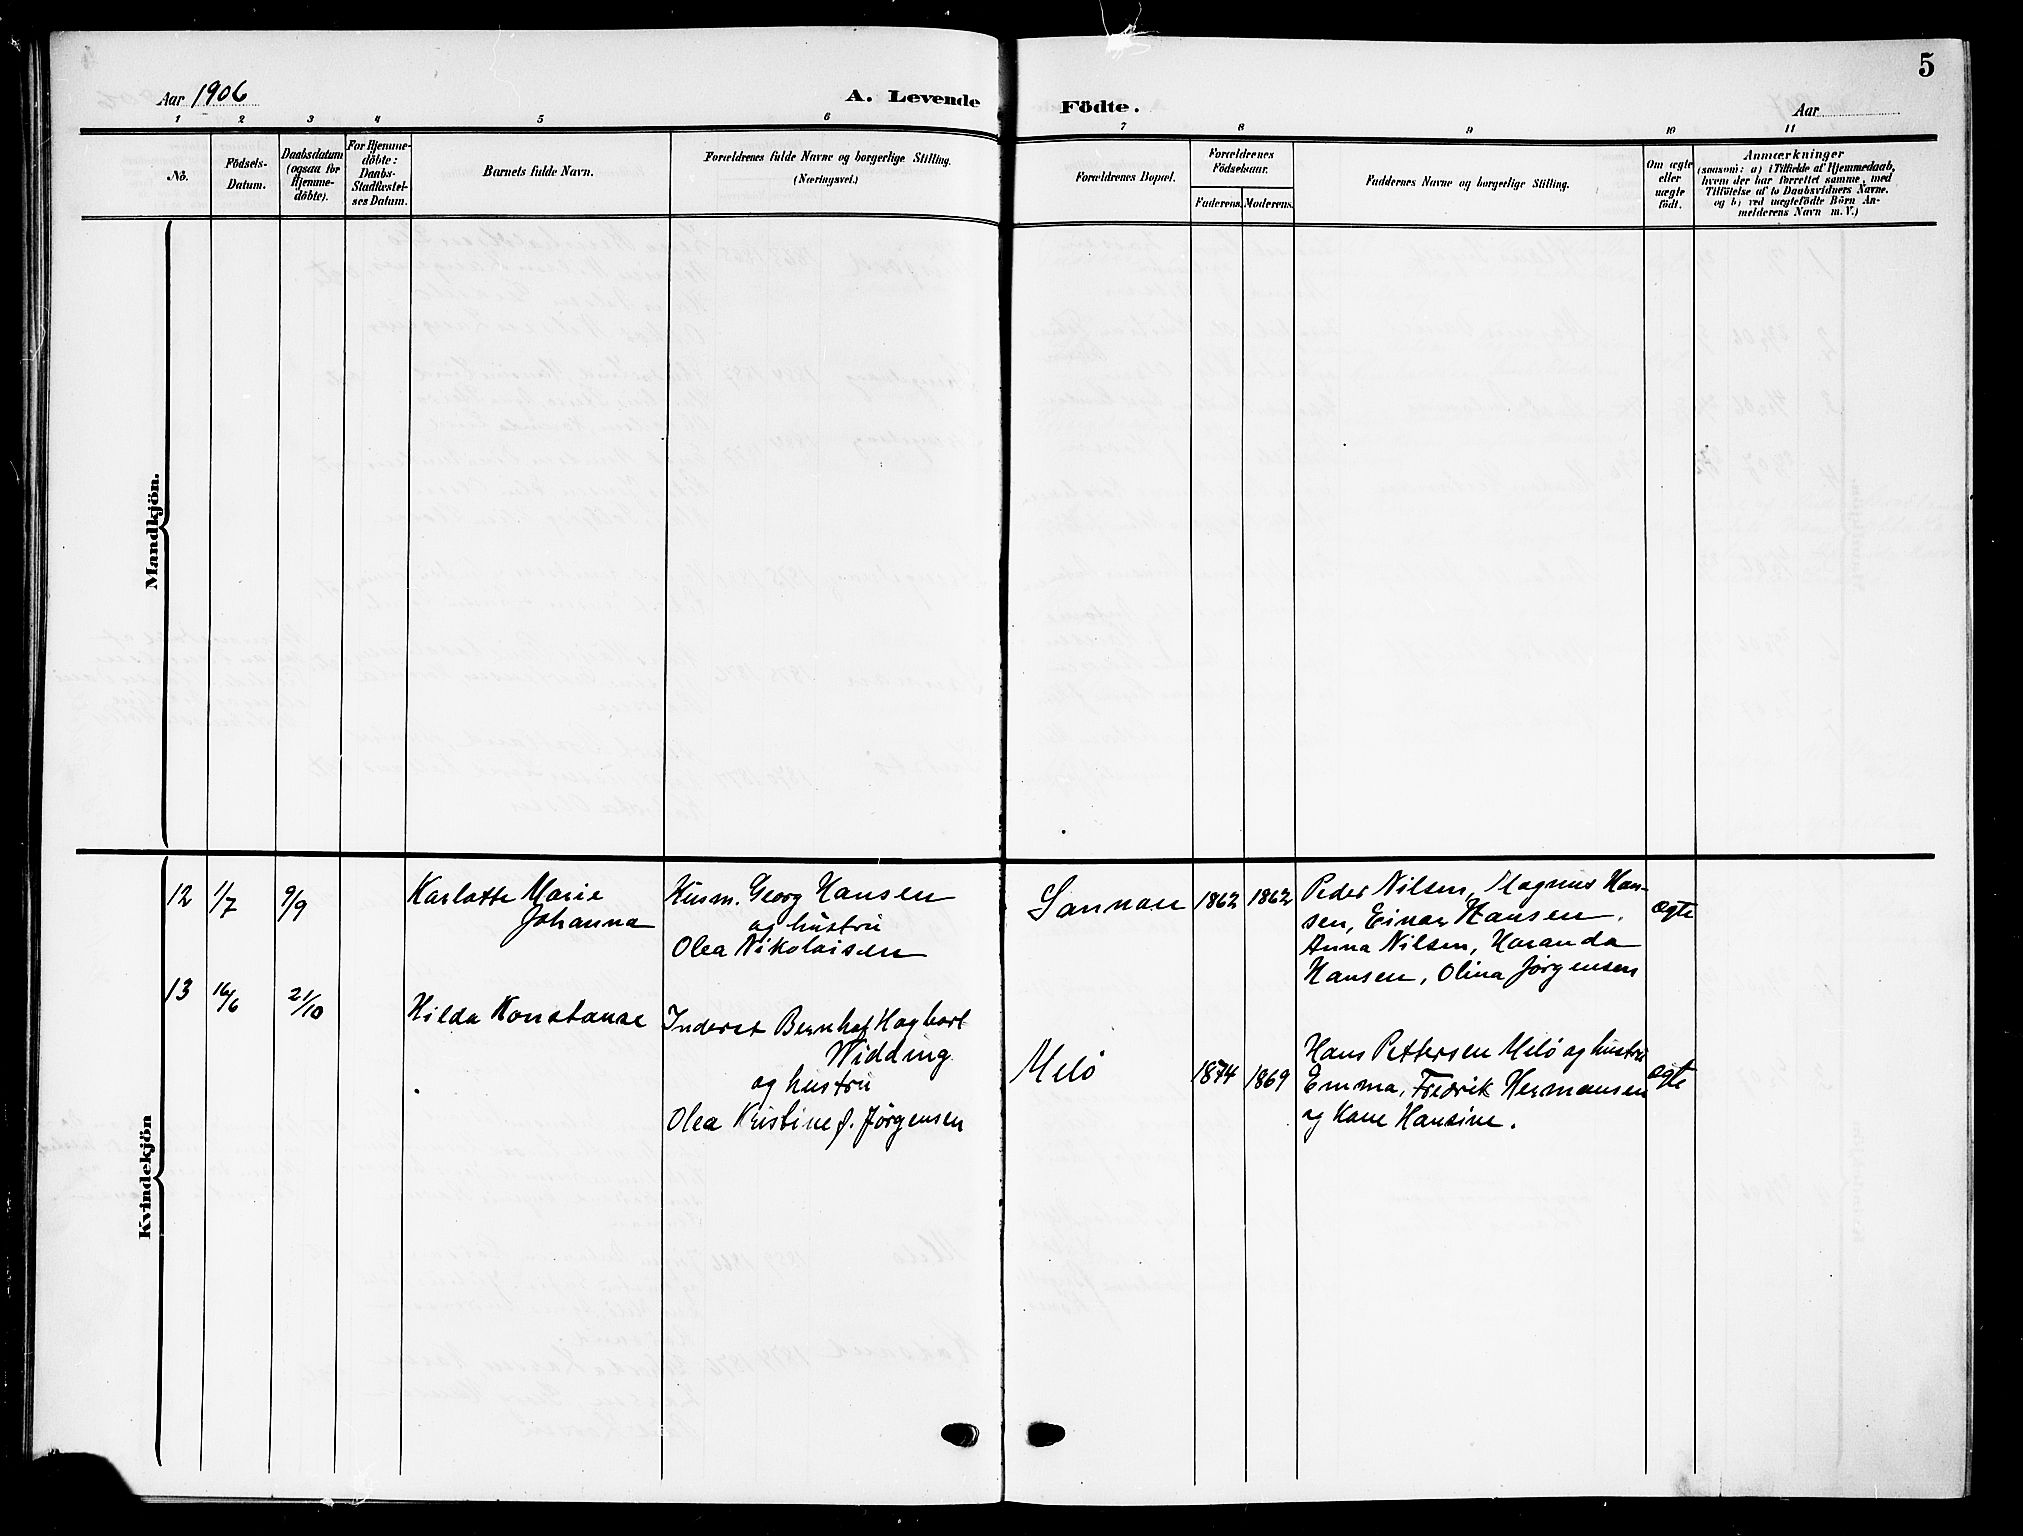 5
Aar 1906
A. Levende
Födte.
Aar
1 2 3 4 5 6 7 8 9 10 11
No.
Födsels-
Datum.
Daabsdatum
(ogsaa for
Hjemme-
döbte).
For Hjemme-
döbte:
Daabs-
Stadfæstel-
ses Datum.
Barnets fulde Navn.
Forældrenes fulde Navne og borgerlige Stilling.
(Næringsvei.)
Forældrenes Bopæl.
Forældrenes
Födselsaar.
Faderens. Moderens.
Faddernes Navne og borgerlige Stilling.
Om ægte
eller
uægte
födt.
Anmærkninger
(saasom: a) i Tilfælde af Hjemmedaab,
hvem der har forrettet samme, med
Tilföielse af to Daabsvidners Navne.
og b) ved uægtefödte Börn An-
melderens Navn m.V.)
Mandkjön.
Kvindekjön
12 1/7 9/9 Karlotte Marie
Johanna
Husm. Georg Hansen
og hustru
Olea Nikolaisen
Sannan 1862 1862
Peder Nilsen, Magnus Han-
sen, Einar Hansen,
Anna Nilsen, Haranda
Hansen, Olina Jørgensen
ægte
13 16/6 21/10 Hilda Konstanse
Inderst Bernhof Hagbart
Widding
og hustru
Olea Kristine f. Jørgensen
Melö 1874 1869
Hans Pettersen Melö og hustru
Emma, Fredrik Hermansen
og Kone Hansine.
ægte